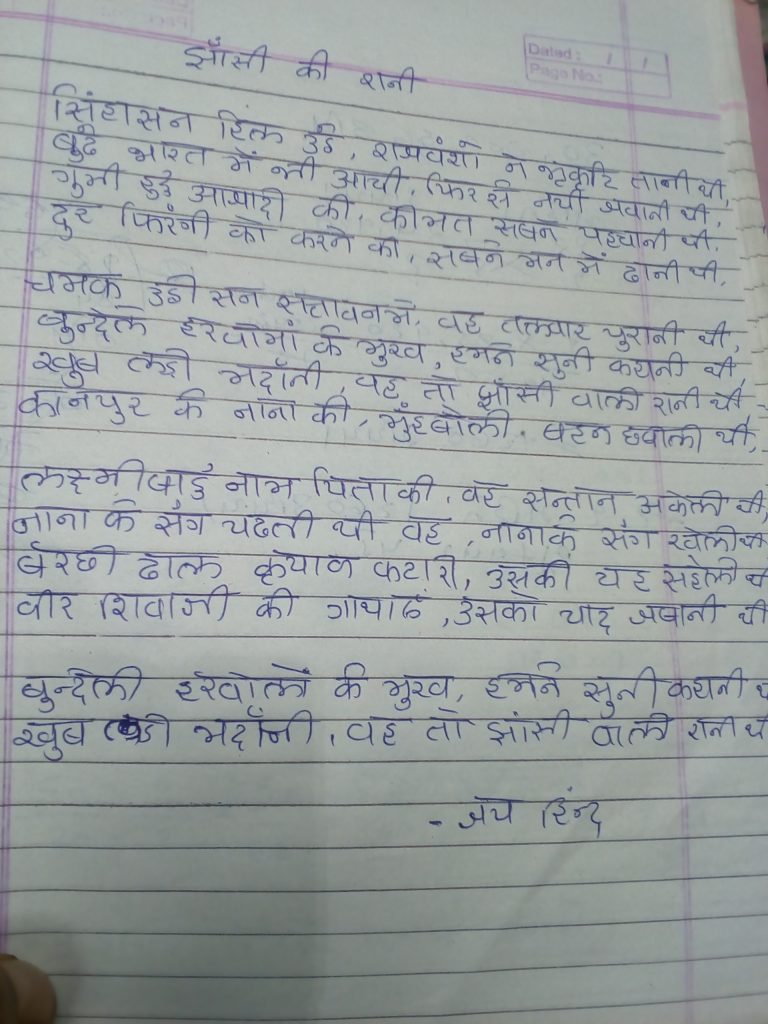 झाँसी की रानी
Dated: / /
Page No.:
सिंहासन हिल उठे, राजवंशो ने भृकुटि तानी थी,
बुढे भारत में भी आयी, फिर से नयी जवानी थी,
गुमी हुई आजादी की, कीमत सबने पहचानी थी.
दुर फिरंगी को करने की, सबने मन में ठानी थी.
चमक उठी सन सत्तावनमें, वह तलवार पुरानी थी,
बुन्देले हरबोलां के मुख, हमने सुनी कहानी थी,
खुब लडी मर्दानी, वह तो झांसी वाली रानी थी,
कानपुर के नाना की, मुँहबोली, बहन छबीली थी,
लक्ष्मीबाई नाम पिता की, वह सन्तान अकेली थी,
नाना के संग पढती थी वह, नाना के संग खेली थी
बरछी ढाल कृपाण कटारी, उसकी यह सहेली थी
वीर शिवाजी की गाथाएं, उसको याद जबानी थी
बुन्देली हरबोलों के मुख, हमने सुनी कहानी थी
खुब लडी मर्दानी, वह तो झांसी वाली रानी थी
- जय हिन्द